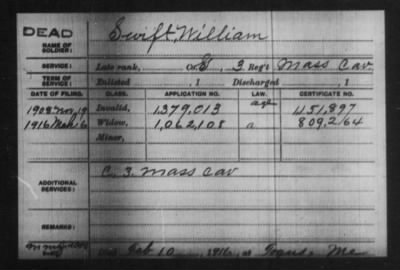 DEAD
NAME OF SOLDIER: Swift, William
SERVICE: Late rank, Co. G, 3 Reg't Mass Cav
TERM OF SERVICE: Enlisted , 1 Discharged , 1
DATE OF FILING. CLASS. APPLICATION NO. LAW. CERTIFICATE NO.
1908 Nov, 19 Invalid, 1,379,013 age 1151,897
1916 Mch 6 Widow, 1,062,108 a 809,264
Minor,
ADDITIONAL SERVICES: C. 3. Mass Cav
REMARKS:
Died Feb 10, 1916, at Me